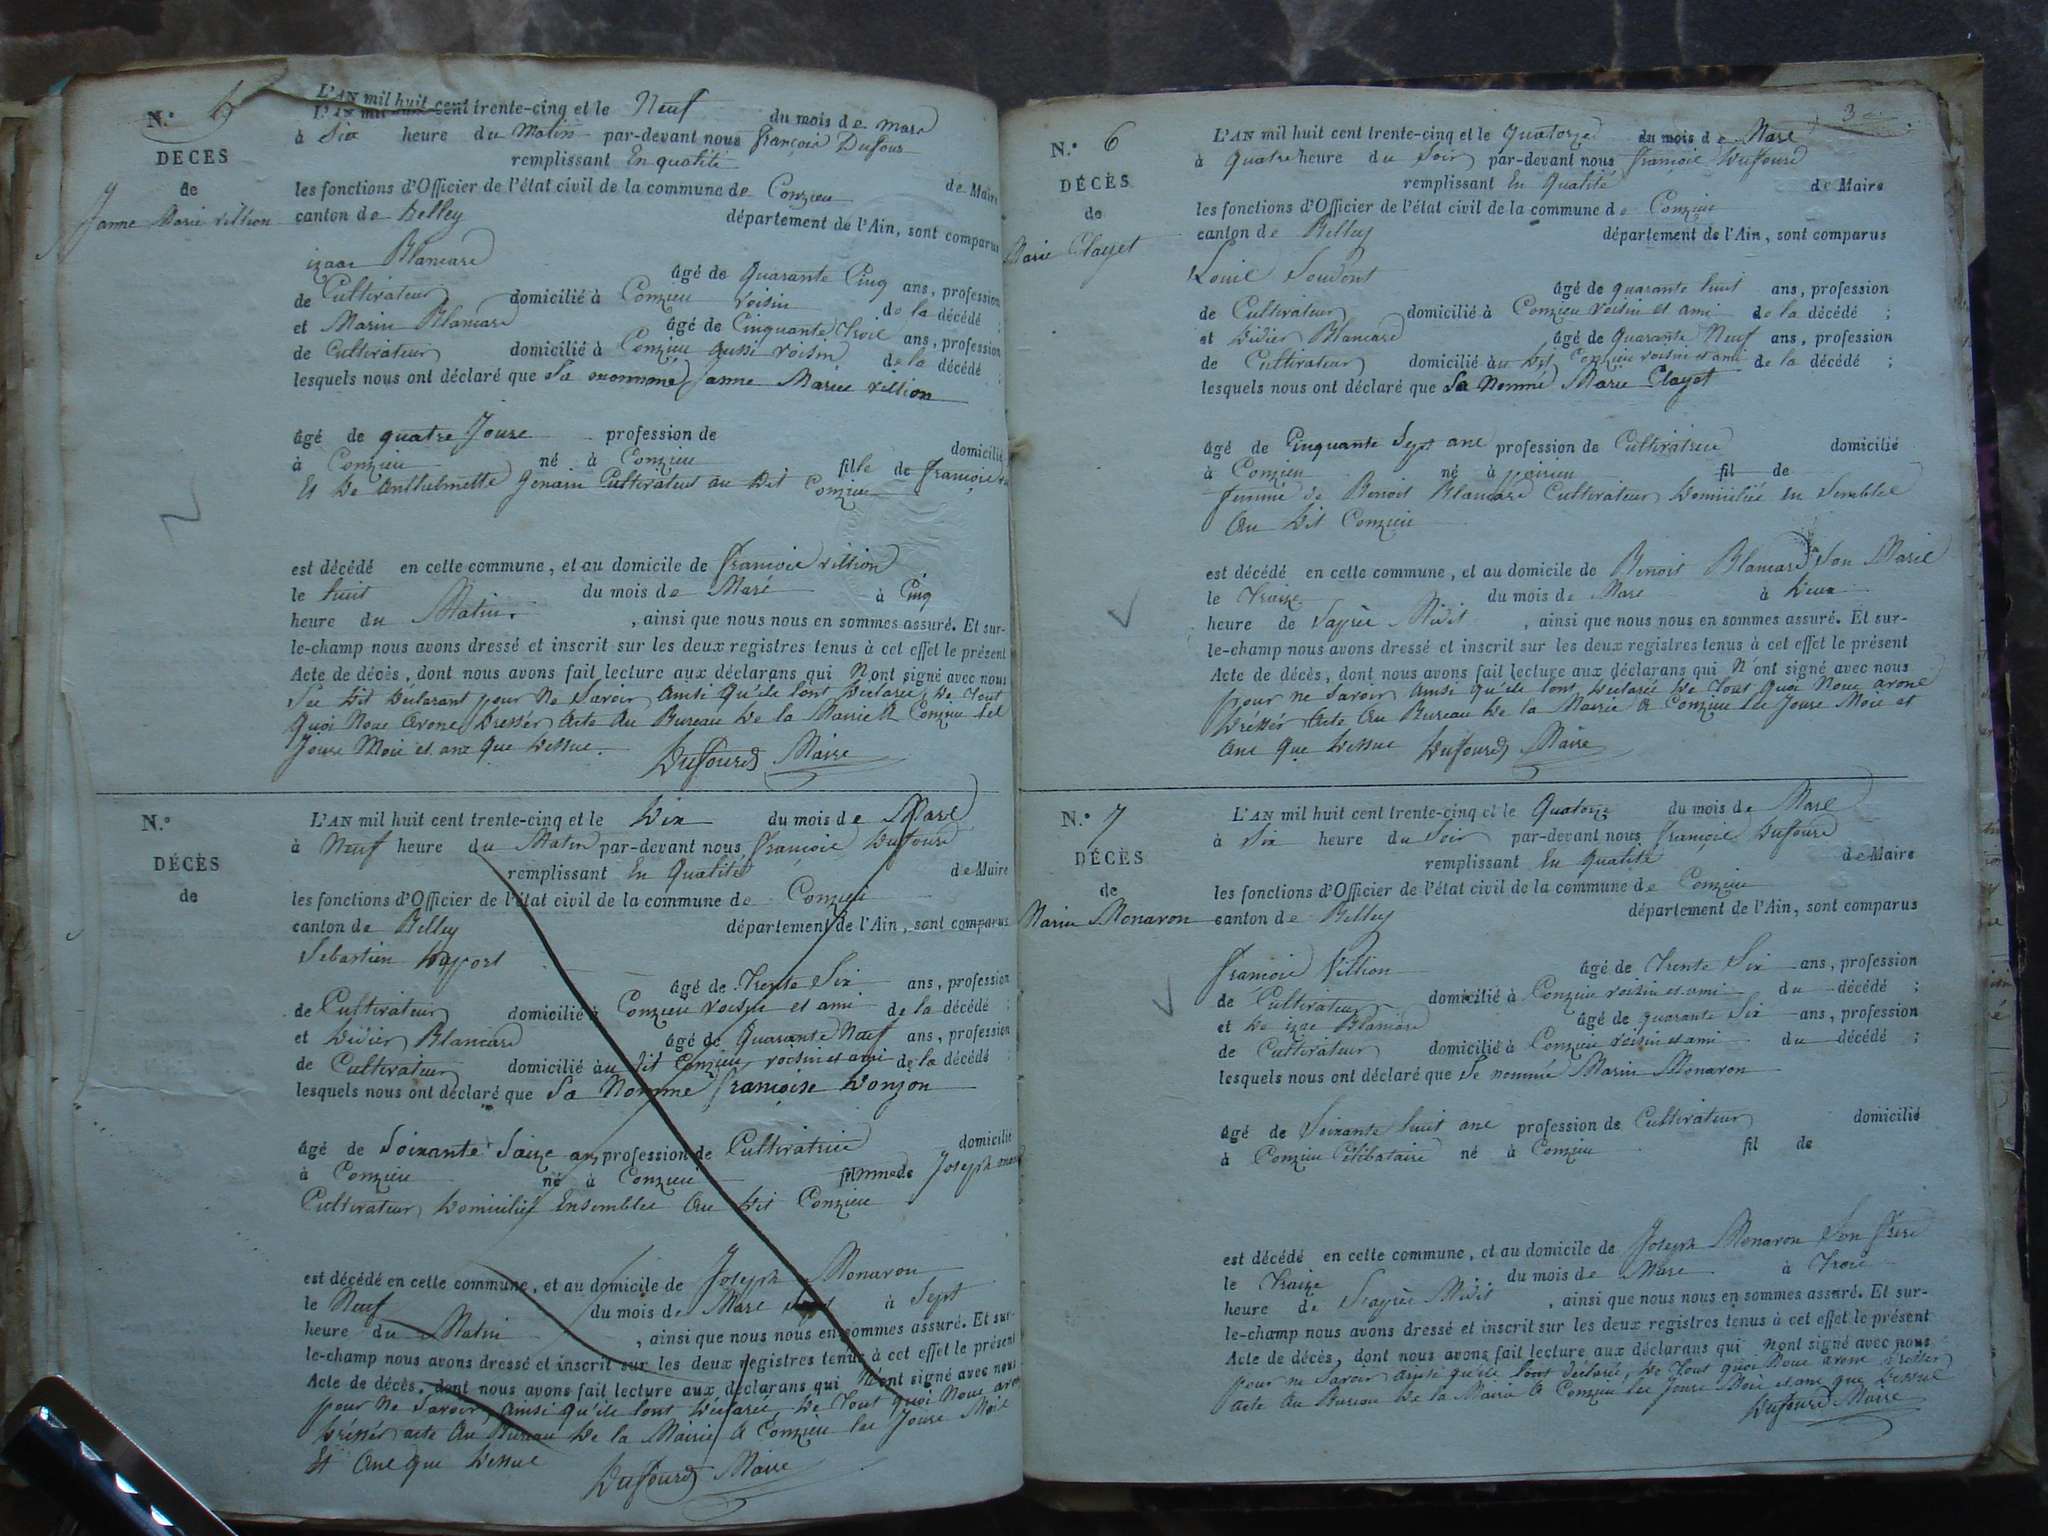 N.º
DECES
de
Janne Marie villion
L'AN mil huit cent trente-cinq et le Neuf du mois de mars
à Six heure du Matin par-devant nous françois Dufour
remplissant En qualité de Maire
les fonctions d'Officier de l'état civil de la commune de Conzieu
canton de belley département de l'Ain, sont comparus
izaac Blancard âgé de Quarante Cinq ans, profession
de Cultivateur domicilié à Conzieu voisin de la décédé ;
et Marin Blancard âgé de Cinquante trois ans, profession
de Cultivateur domicilié à Conzieu aussi voisin de la décédé ;
lesquels nous ont déclaré que La Janne Marie villion
âgé de quatre Jours profession de domicilié
à Conzieu né à Conzieu fille de françois
Et de Anthelmette Cultivateur au dit Conzieu
est décédé en cette commune, et au domicile de françois villion
le huit du mois de Mars à Cinq
heure du Matin. , ainsi que nous nous en sommes assuré. Et sur-
le-champ nous avons dressé et inscrit sur les deux registres tenus à cet effet le présent
Acte de décès, dont nous avons fait lecture aux déclarans qui Nont signé avec nous
dit déclarant pour Ne Savoir Ainsi qu'ils lont déclaré, de tout
Quoi Nous avons dressér acte Au Bureau de la Mairie A Conzieu les
Jours Mois et ans que dessus.
Dufourd Maire
N.º
DÉCÈS
de
L'AN mil huit cent trente-cinq et le dix du mois de Mars
à Neuf heure du Matin par-devant nous françois Dufourd
remplissant En Qualité de Maire
les fonctions d'Officier de l'état civil de la commune de Conzieu
canton de Belley département de l'Ain, sont comparus
Sebastien âgé de Trente Six ans, profession
de Cultivateur domicilié à Conzieu voisin et ami de la décédé ;
et Didier Blancard âgé de Quarante Neuf ans, profession
de Cultivateur domicilié au dit Conzieu voisin et ami de la décédé ;
lesquels nous ont déclaré que La Nommé françoise
âgé de Soixante Saize ans profession de Cultivatrice domicilié
à Conzieu né à Conzieu femme de Joseph
Cultivateur Domiciliés Ensembles Au dit Conzieu
est décédé en cette commune, et au domicile de Joseph Monavon
le Neuf du mois de Mars à Sept
heure du Matin , ainsi que nous nous en sommes assuré. Et sur-
le-champ nous avons dressé et inscrit sur les deux registres tenus à cet effet le présent
Acte de décès, dont nous avons fait lecture aux déclarans qui Nont signé avec nous
pour Ne Savoir, Ainsi qu'ils lont déclaré, de tout quoi Nous avons
dressér acte Au Bureau de la Mairie A Conzieu les Jours Mois
Et Ans que dessus
Dufourd Maire
N.º 6
DÉCÈS
de
Marie Clayet
L'AN mil huit cent trente-cinq et le quatorze du mois de Mars
à quatre heure du Soir par-devant nous françois Dufourd
remplissant En Qualité de Maire
les fonctions d'Officier de l'état civil de la commune de Conzieu
canton de Belley département de l'Ain, sont comparus
Louis âgé de quarante huit ans, profession
de Cultivateur domicilié à Conzieu voisin et ami de la décédé ;
et Didier Blancard âgé de Quarante Neuf ans, profession
de Cultivateur domicilié au dit Conzieu voisin et ami de la décédé ;
lesquels nous ont déclaré que La Nommé Marie Clayet
âgé de Cinquante Sept ans profession de Cultivatrice domicilié
à Conzieu né à fil de
femme de Benoit Blancard Cultivateur Domiciliés En Sembles
Au dit Conzieu
est décédé en cette commune, et au domicile de Benoit Blancard Son Marie
le Traize du mois de Mars à deux
heure de Laprès Midit , ainsi que nous nous en sommes assuré. Et sur-
le-champ nous avons dressé et inscrit sur les deux registres tenus à cet effet le présent
Acte de décès, dont nous avons fait lecture aux déclarans qui N'ont signé avec nous
pour ne Savoir ainsi qu'ils lont déclaré de tout quoi Nous avons
dressér acte Au Bureau de la Mairie A Conzieu les Jours Mois et
Ans que dessus Dufourd Maire
N.º 7
DÉCÈS
de
Marin Monavon
L'AN mil huit cent trente-cinq et le Quatorze du mois de Mars
à Six heure du Soir par-devant nous françois Dufourd
remplissant En Qualité de Maire
les fonctions d'Officier de l'état civil de la commune de Conzieu
canton de Belley département de l'Ain, sont comparus
françois Villion âgé de Trente Six ans, profession
de Cultivateur domicilié à Conzieu voisin et ami du décédé ;
et Blancard âgé de quarante Six ans, profession
de Cultivateur domicilié à Conzieu voisin et ami du décédé ;
lesquels nous ont déclaré que Le nommé Marin Monavon
âgé de Soixante huit ans profession de Cultivateur domicilié
à Conzieu Célibataire né à Conzieu fil de
est décédé en cette commune, et au domicile de Joseph Monavon Son frère
le Traize du mois de Mars à Trois
heure de Laprès Midit , ainsi que nous nous en sommes assuré. Et sur-
le-champ nous avons dressé et inscrit sur les deux registres tenus à cet effet le présent
Acte de décès, dont nous avons fait lecture aux déclarans qui nont signé avec nous
pour ne Savoir ainsi qu'ils lont déclaré, de tout quoi Nous avons dressér
acte Au Bureau de la Mairie A Conzieu les Jours Mois et ans que dessus
Dufourd Maire